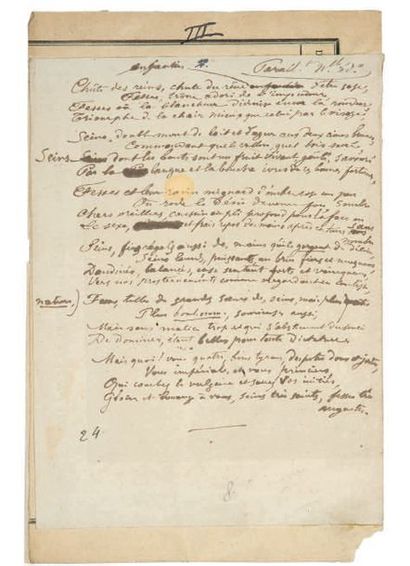 III
enfantin
Chute des reins, chute du rêve d'être sage,
Fesses, trône adoré de l'impudeur,
Fesses où la blancheur divinise encor la rondeur,
Triomphe de la chair mieux que celui par le visage!
Seins, double mont de lait et d'azur aux deux cimes brunes,
Commandant quel vallon, quel bois sacré!
Seins dont les bouts sont un fruit vivant, goûté, savouré
Par la langue et la bouche ivres de ces bonnes fortunes,
Fesses et leur ravin mignard d'ombre rose un peu
Où rôde le désir devenu fou,
Chers oreillers, coussin au pli profond pour la face ou
Le sexe, et frais repos des mains après ces
Seins, fins régals aussi de mains qu'ils de délices,
Seins lourds, puissants, un brin fiers et
Dandinés, balancés, et se sentant forts et vainqueurs,
Vers nos prosternements comme regardant en coulisse
Fesses, les grandes sœurs des seins, mais plus
Plus bonhomme, sourieuses aussi,
Mais sans malice trop et qui s'abstiennent du souci
De dominer, étant belles pour toute dictature
Mais quoi! vous quatre, bons tyrans, despotes doux et justes,
Vous impériales et vous princiers,
Qui courbez le vulgaire et sacrez vos initiés,
Gloire et louange à vous, seins très saints, fesses très
augustes.
24
8